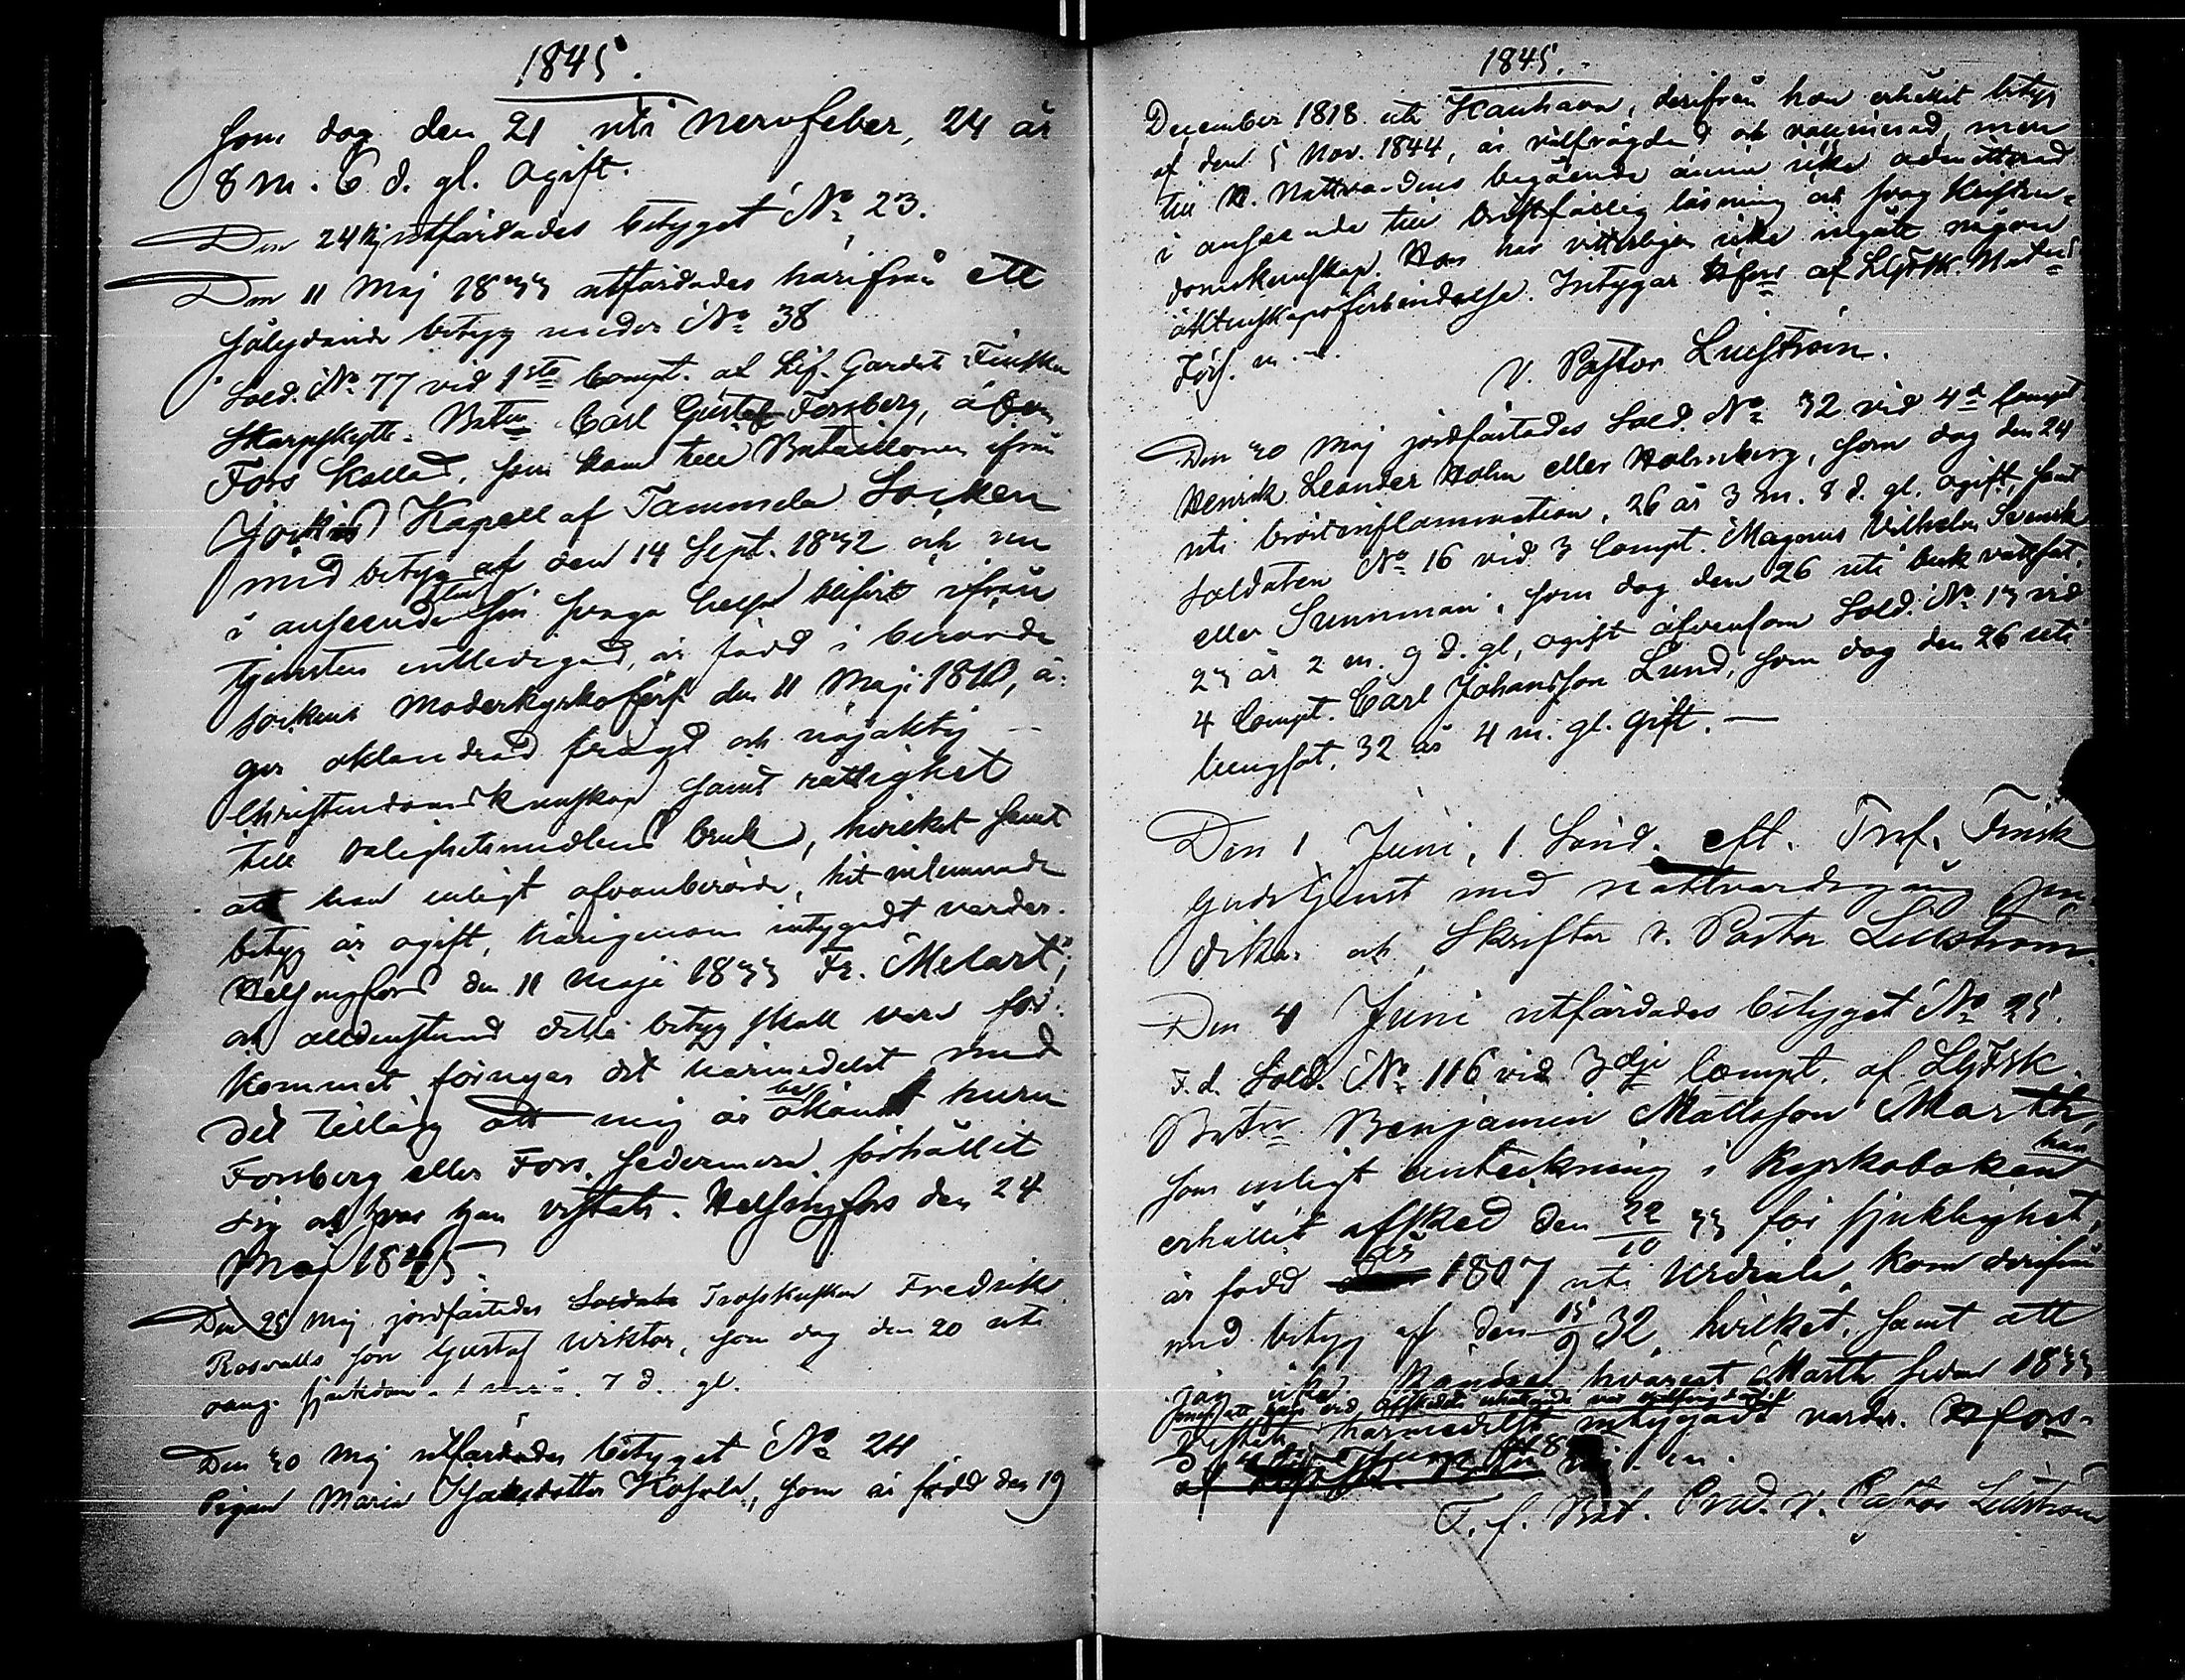 1845.
som dog den 21 uti Nervfeber, 24 år
8 m. 6 d. gl. Ogift.
Den 24 Maj utfärdades betyget No 23.
Den 11 Maj 1833 utfärdades härifrån ett
sålydande betyg under No 38
"Sold. No 77 vid 1sta Compt. af Lif-Gardets Finska
Skarpskytte-Batn Carl Gustaf Forsberg, äfven
Fors kallad, som kom till Bataillonen ifrån
Jockis Kapell af Tammela Socken
med betyg af den 14 Sept. 1832 och nu
i anseende till sin svaga helsa blifvit ifrån
tjensten entledigad, är född i berörde
sockens Moderkyrkoförs. den 11 Maji 1810, ä-
ger oklandrad frägd och nöjaktig
Christendomskunskap samt rättighet
till salighetsmedlens bruk, hvilket samt
att han enligt ofvanberörde, hit inlemnade
betyg är ogift, härigenom intygadt varder.
Helsingfors den 11 Maji 1833 Fr. Melart";
och alldenstund detta betyg skall vara för-
kommet förnyas det härmedelst med
det tillägg att mig är obekant huru
Forsberg eller Fors sedermera förhållit
sig och hvar han vistats. Helsingfors den 24
Maj 1845.
Den 25 Maj jordfästades Soldats Trosskusken Fredrik
Rosvalls son Gustaf Wiktor, som dog den 20 uti
oang. sjukdom 7 d. gl.
Den 30 Maj utfärdades betyget No 24
Pigan Maria Isaksdotter Kosola, som är född den 19
1845.
December 1818 uti Kauhava, derifrån hon erhållit betyg
af den 5 Nov. 1844, är välfrägdad och vaccinerad, men
till H. Nattvardens begående ännu icke admitterad
i anseende till bristfällig läsning och svag Kristen-
domskunskap. Hon har vitterligen icke ingått någon
äktenskapsförbindelse. Intygar Hfors af LGFSk. Batns
Förs. u. s.
V. Pastor Lillström.
Den 30 Maj jordfästades Sold. No 32 vid 4de Compt
Henrik Leander Holm eller Holmberg, som dog den 24
uti bröstinflammation, 26 år 3 m. 8 d. gl. ogift, samt
Soldaten No 16 vid 3 Compt. Magnus Vilhelm Svensk
eller Summari, som dog den 26 uti buk vattsot,
23 år 2 m. 9 d. gl, ogift äfvensom Sold. No 13 vid
4 Compt. Carl Johansson Lund, som dog den 26 uti
lungsot, 32 år 4 m. gl. Gift.
Den 1 Juni, 1 Sönd. eft. Tref. Finsk
gudstjenst med nattvardsgång pre-
dika. och Skrifter v. Pastor Lillström.
Den 4 Juni utfärdades betyget No 25.
F.d. Sold. No 116 vid 3dje Compt. af LGFSk.
Batn Benjamin Mattsson Marth,
som enligt anteckning i Kyrkoboken här
erhållit afsked den 22/10 33 för sjuklighet,
är född år 1807 uti Urdiala, kom derifrån
med betyg af den 15/9 32, hvilket, samt att
jag icke känner hvarest Marth sedan 1833
samt att han vid afskedets erhållande var
vistats härmedelst intygadt varder. Hfors
T. f. Bat. Pred. v. Pastor Lillström